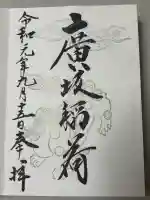 奉拝
廣坂稲荷
令和元年九月十五日